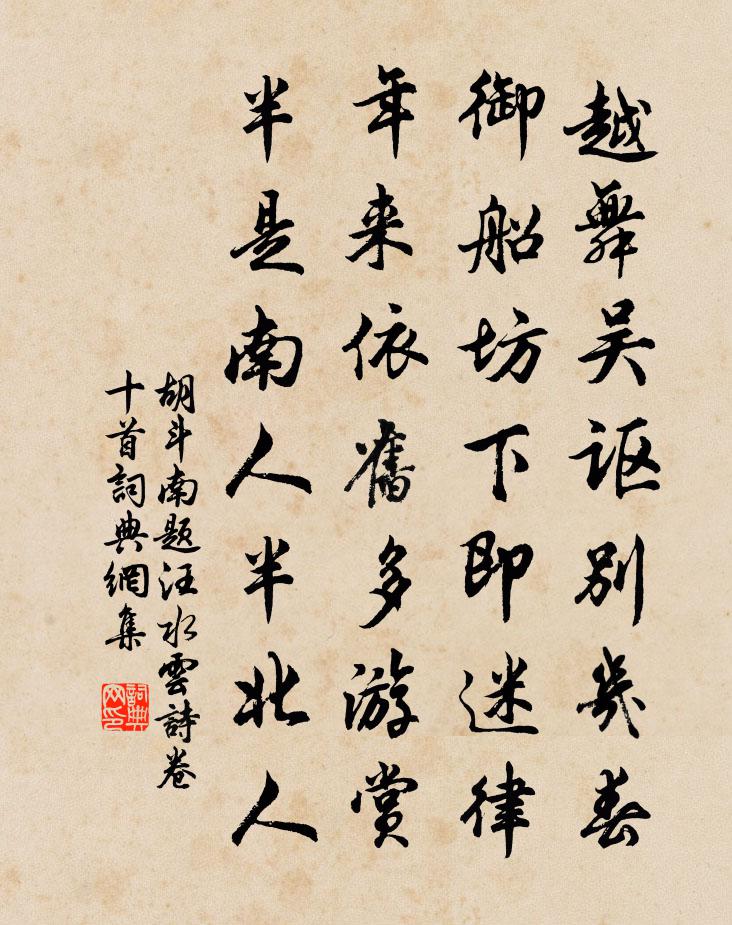 越舞吴讴别幾春
御船坊下即迷律
年来依舊多游赏
半是南人半北人
胡斗南题汪水雲詩卷
十首詞典網集
詞典网印